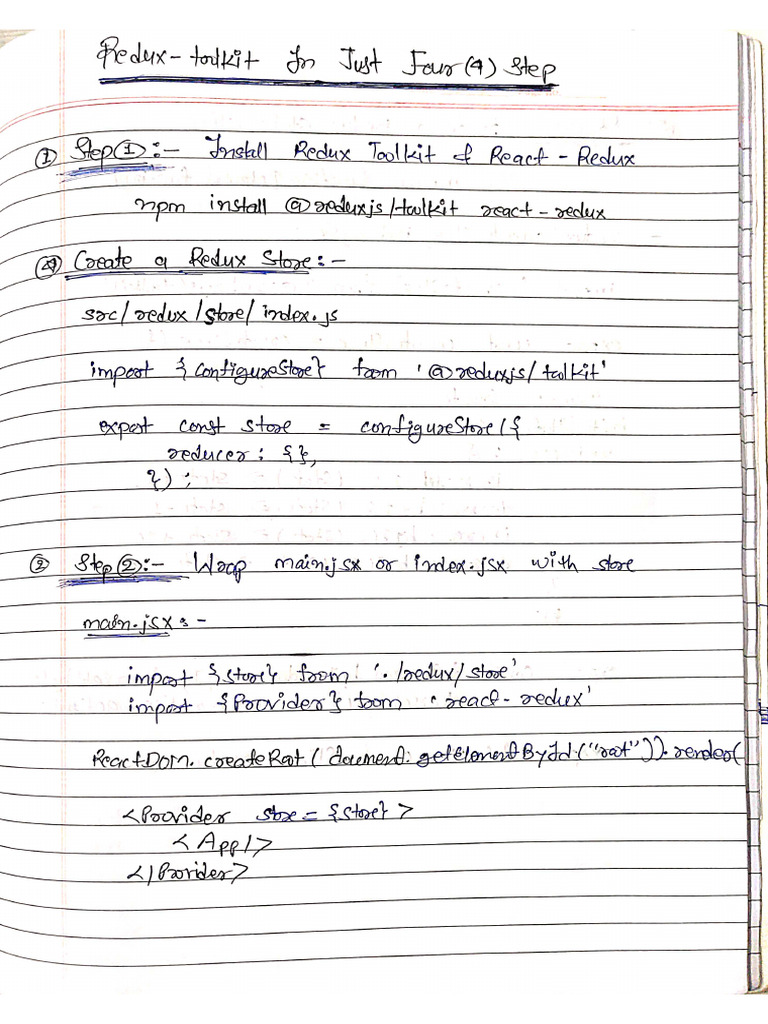 Redux-toolkit In Just Four(4) Step
① Step①:- Install Redux Toolkit & React-Redux
npm install @reduxjs/toolkit react-redux
Create a Redux Store:-
src/redux/store/index.js
import {configureStore} from '@reduxjs/toolkit'
export const store = configureStore({
reducer: {},
});
② Step②:- Wrap main.jsx or index.jsx with store
main.jsx:-
import {store} from './redux/store'
import {Provider} from 'react-redux'
ReactDom.createRoot(document.getElementById("root")).render(
<Provider store={store}>
<App/>
</Provider>